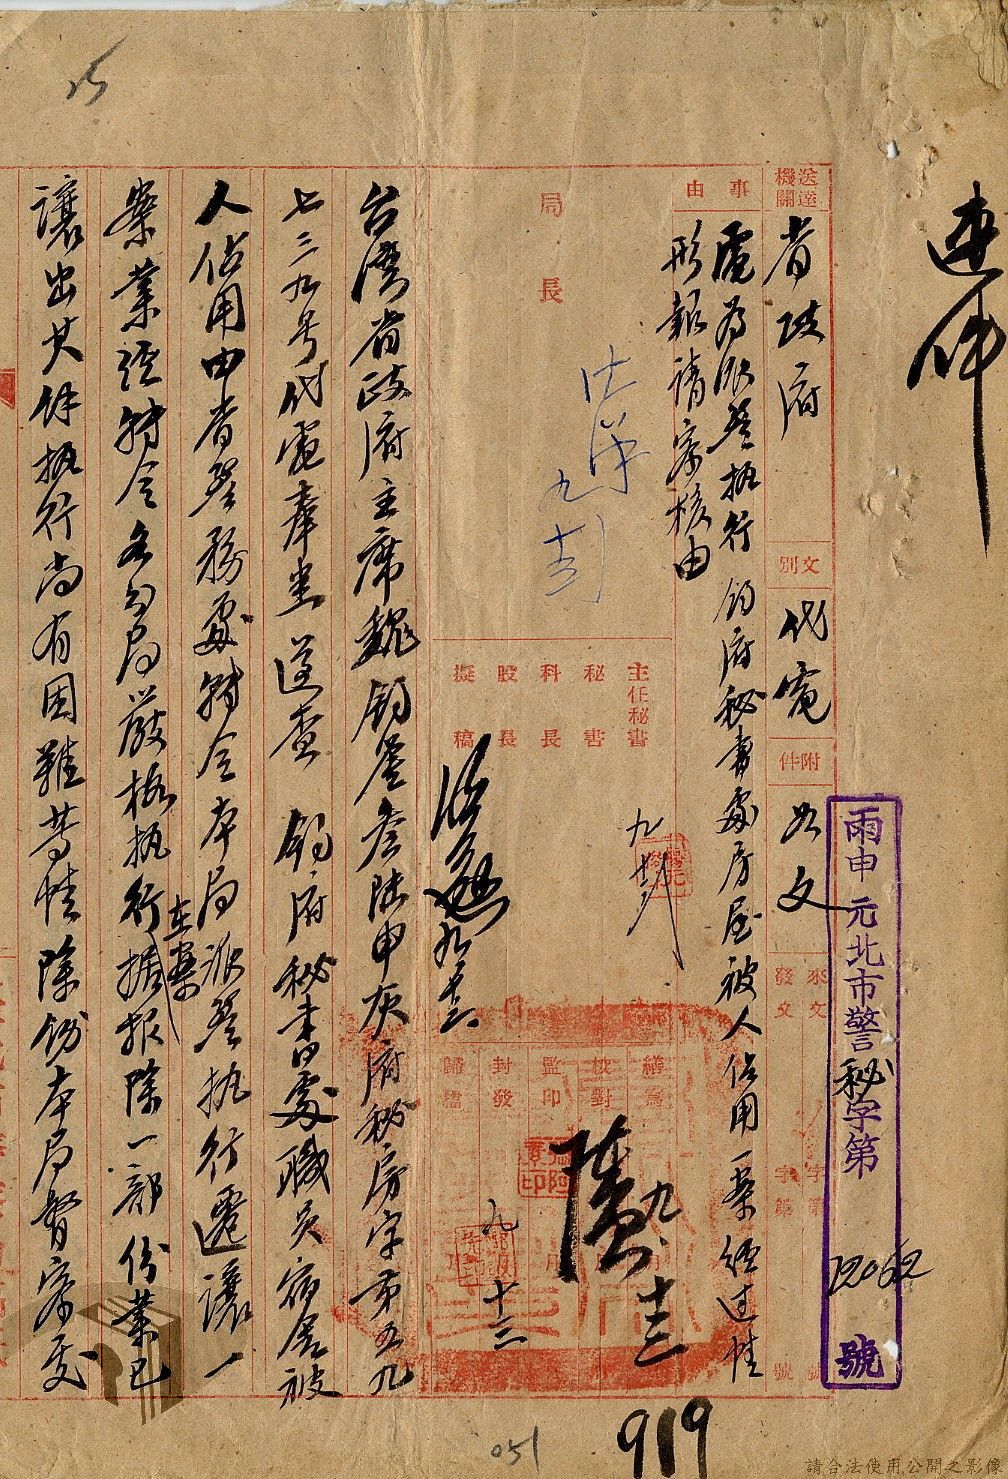 速件
雨申元北市警秘字第12062號
送達機關
省政府
文別
代電
附件
如文
來文 字第 號
發文 字第 號
事由
電為派警執行 鈞府秘書處房屋被人佔用一案經過情
形報請察核由
局長
九 十三
主任秘書
秘書
科長
股長
擬稿
九 十三
九 十三
繕寫
校對
監印
封發
歸檔
九 十三
九 十三
台灣省政府主席魏鈞鑒叁陆申灰府秘房字第五九
七三九号代電奉悉遵查 鈞府秘書處職員宿舍被
人佔用由省警務處轉令本局派警執行遷讓一
案業經轉令各分局嚴格執行在案據报除一部份業已
讓出其余执行尚有困難等情除飭本局督察處
15
051
919
請合法使用公開之影像